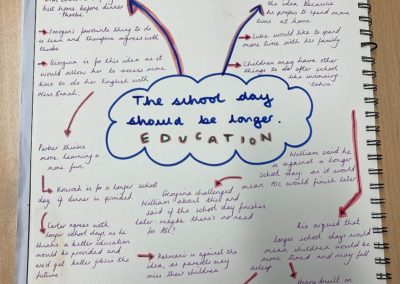 but home before dinner
Phoebe
the idea because
he prefers to spend more
time at home.
Imogen's favourite thing to do
is learn and therefore agrees with
Phoebe
Luke would like to spend
more time with his family
Georgina is for this idea as it
would allow her to access more
time to do her English with
Miss
Children may have other
things to do after school
like swimming
The school day
should be longer.
EDUCATION
Parker thinks
more learning =
more fun.
is for a longer school
day if dinner is provided
Georgina challenged
William about this and
said if the school day finishes
later maybe there's no need
for ASC?
William said he
is against a longer
school day as it would
mean ASC would finish later
Carter agrees with
longer school days as he
thinks a better education
would be provided and
we'd get better jobs in the
future
is against the
idea, as parents may
miss their children
argued that
longer school days would
mean children would be
more tired and may fall
asleep
built on